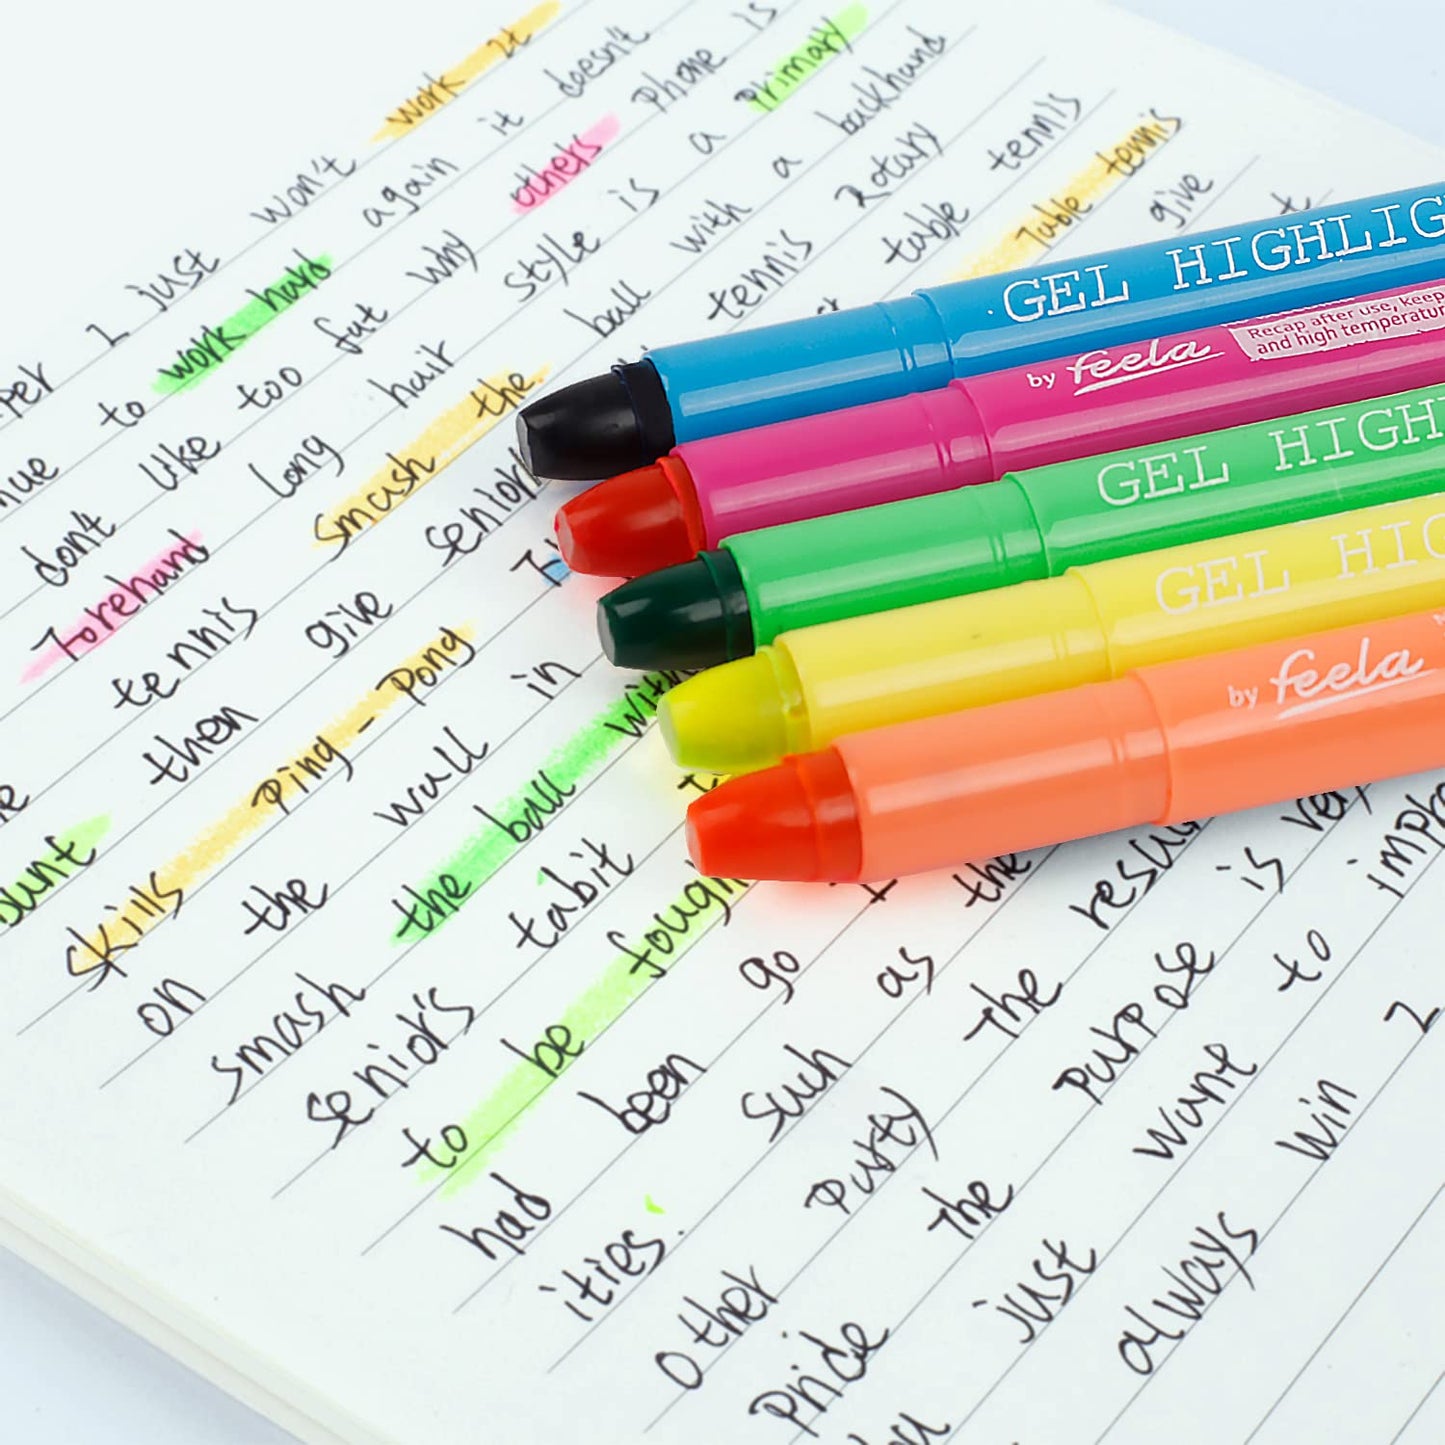 per I just won't work it
nue to work hard again it doesn't
don't like too fat why others phone is
Forehand long hair style is a primary
tennis smash the ball with a backhand
ount then give senior tennis Rotary
skills Ping-Pong table tennis
on the wall in Table tennis
smash the ball with give
senior's tabit
to be fough
had been go
ities. such as the
Other party The resu
Pride the purpose is very
ou just want to impro
always win I
GEL HIGHLIG
by feela Recap after use, keep
and high temperatur
GEL HIGH
GEL HIG
by feela